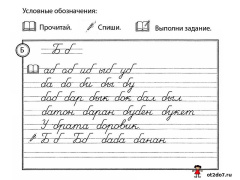 Условные обозначения:
Прочитай. Спиши. Выполни задание.
Б Б б
аб об иб ыб уб
ба бо би бы бу
баб бар бык бок бал был
батон баран буден букет
У брата боровик.
Б б Б б баба банан
ot2do7.ru